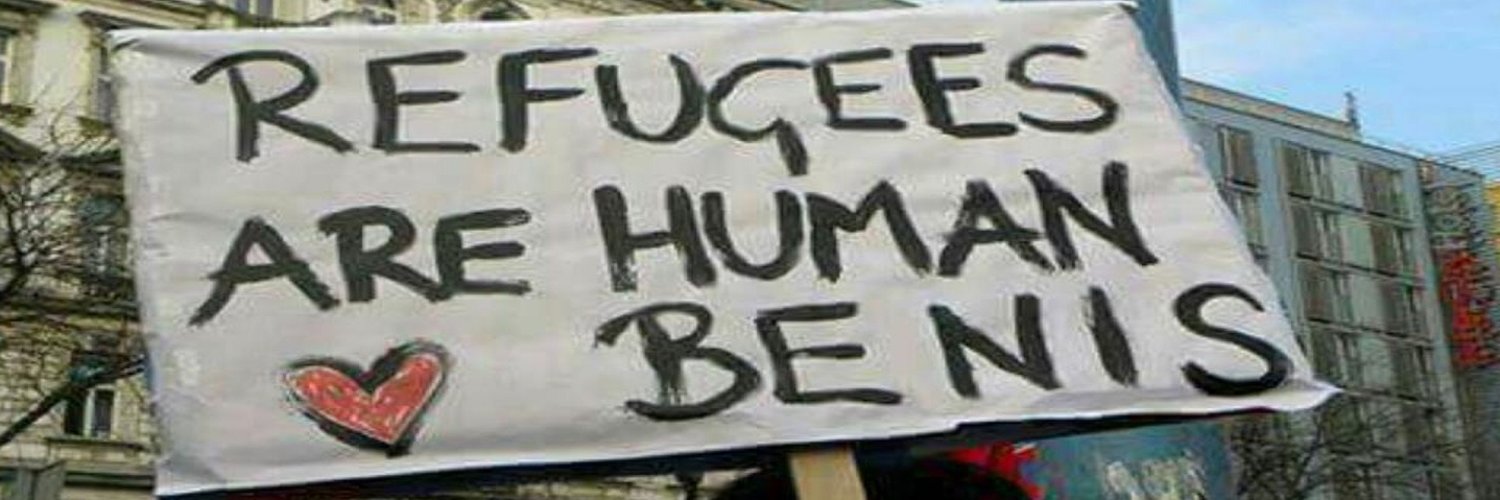 REFUGEES
ARE HUMAN
BENIS